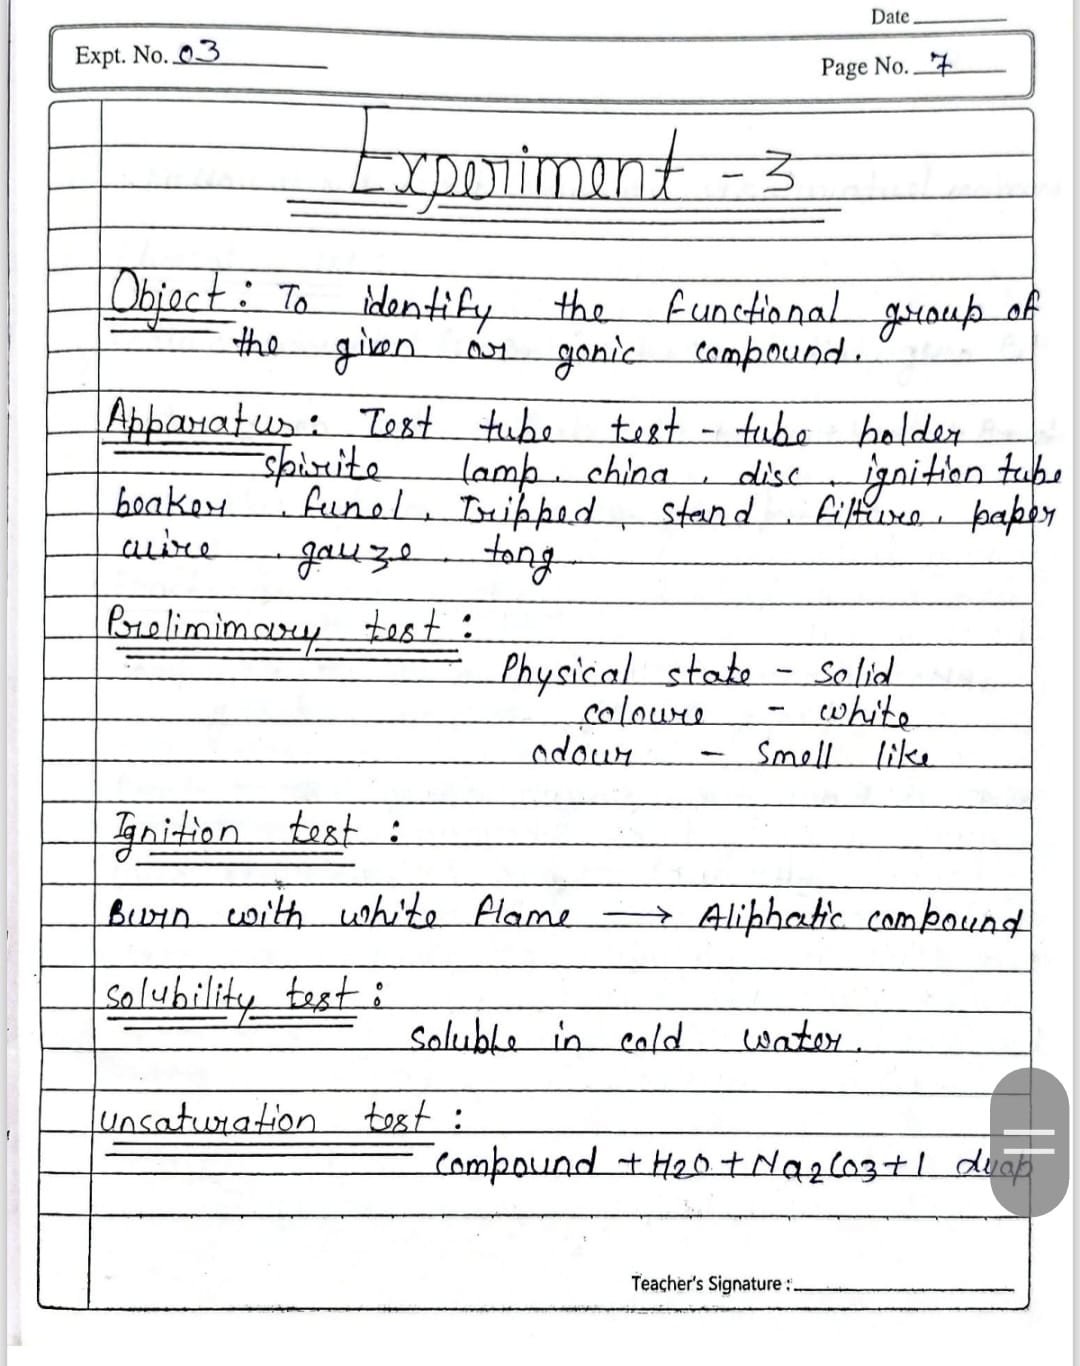 Date
Expt. No. 03
Page No. 7
Experiment - 3
Object : To identify the functional group of
the given or gonic compound.
Apparatus : Test tube test - tube holder
spirite lamp. china , disc , ignition tube
beaker . funel , Tripped , stand . filture . paper
wire . gauze . tong
Prelimimary test :
Physical state - Solid
coloure - white
odour - Smell like
Ignition test :
Burn with white flame → Aliphatic compound
Solubility test :
Soluble in cold water .
unsaturation test :
Compound + H2O + Na2CO3 + 1 drap
Teacher's Signature :